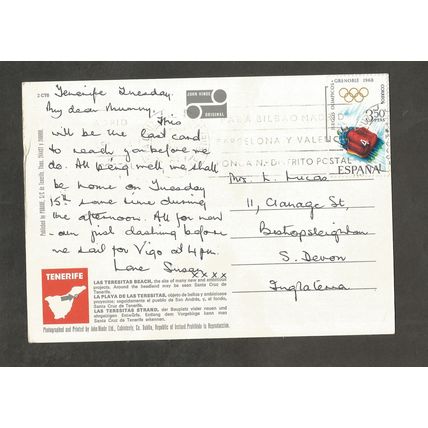 2 CTS
Tenerife Tuesday.
My dear Mummy. This
will be the last card
to reach you before we
do. All being well we shall
be home on Tuesday
15th some time during
the afternoon. All for now
am just dashing before
we sail for Vigo at 4pm.
Love Susan
xxxx
JOHN HINDE
ORIGINAL
GRENOBLE 1968
JUEGOS OLIMPICOS
CORREOS
2,50
PESETAS
4
ESPAÑA
A BILBAO MADRID
BARCELONA Y VALENCIA
DISTRITO POSTAL
Mrs. L. Lucas
11, Clanage St,
Bishopsteignton
S. Devon
Inglaterra
TENERIFE
LAS TERESITAS BEACH, the site of many new and ambitious
projects. Around the headland may be seen Santa Cruz de
Tenerife.
LA PLAYA DE LAS TERESITAS, objeto de bellos y ambiciosos
proyectos; seguidamente el pueblo de San Andrés, y, al fondo,
Santa Cruz de Tenerife.
LAS TERESITAS STRAND, der Bauplatz vieler neuen und
ehrgeizigen Entwürfe. Entlang dem Vorgebirge kann man
Santa Cruz de Tenerife erkennen.
Photographed and Printed by John Hinde Ltd., Cabinteely, Co. Dublin, Republic of Ireland. Prohibido la Reproducción.